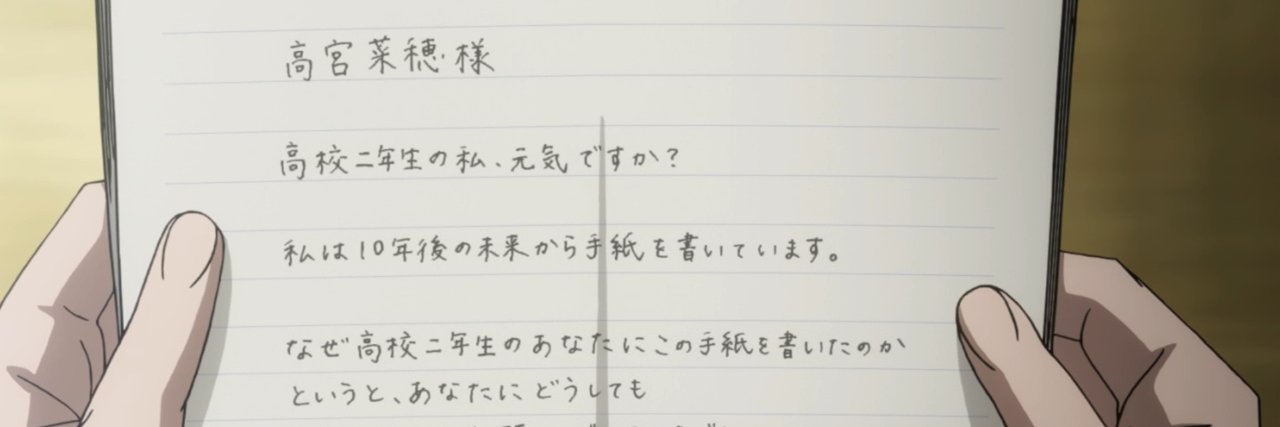 高宮菜穂様
高校二年生の私、元気ですか？
私は10年後の未来から手紙を書いています。
なぜ高校二年生のあなたにこの手紙を書いたのか
というと、あなたにどうしても